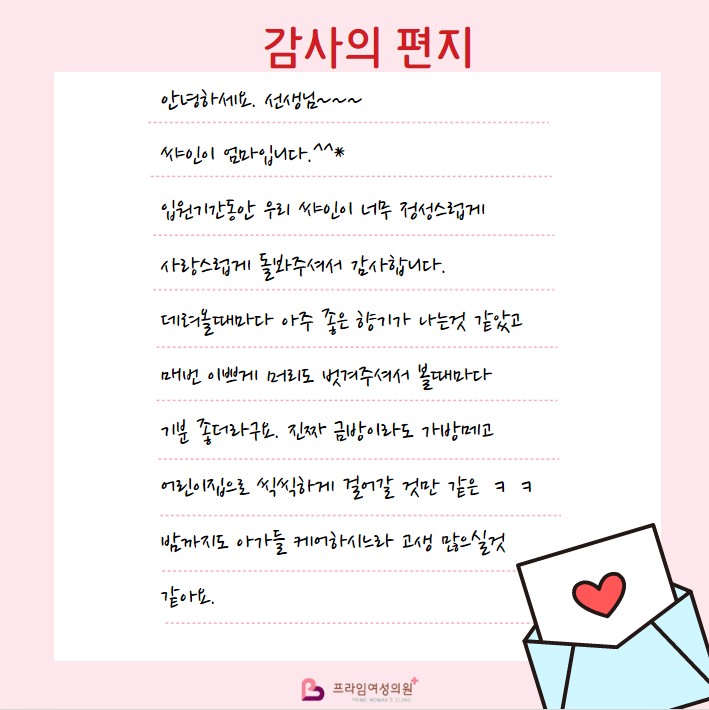 감사의 편지
안녕하세요. 선생님~~~
쌰인이 엄마입니다.^^*
입원기간동안 우리 쌰인이 너무 정성스럽게
사랑스럽게 돌봐주셔서 감사합니다.
데려올때마다 아주 좋은 향기가 나는것 같았고
매번 이쁘게 머리도 벗겨주셔서 볼때마다
기분 좋더라구요. 진짜 금방이라도 가방메고
어린이집으로 씩씩하게 걸어갈 것만 같은 ㅋ ㅋ
밤까지도 아가들 케어하시느라 고생 많으실것
같아요.
프라임여성의원
PRIME WOMAN'S CLINIC